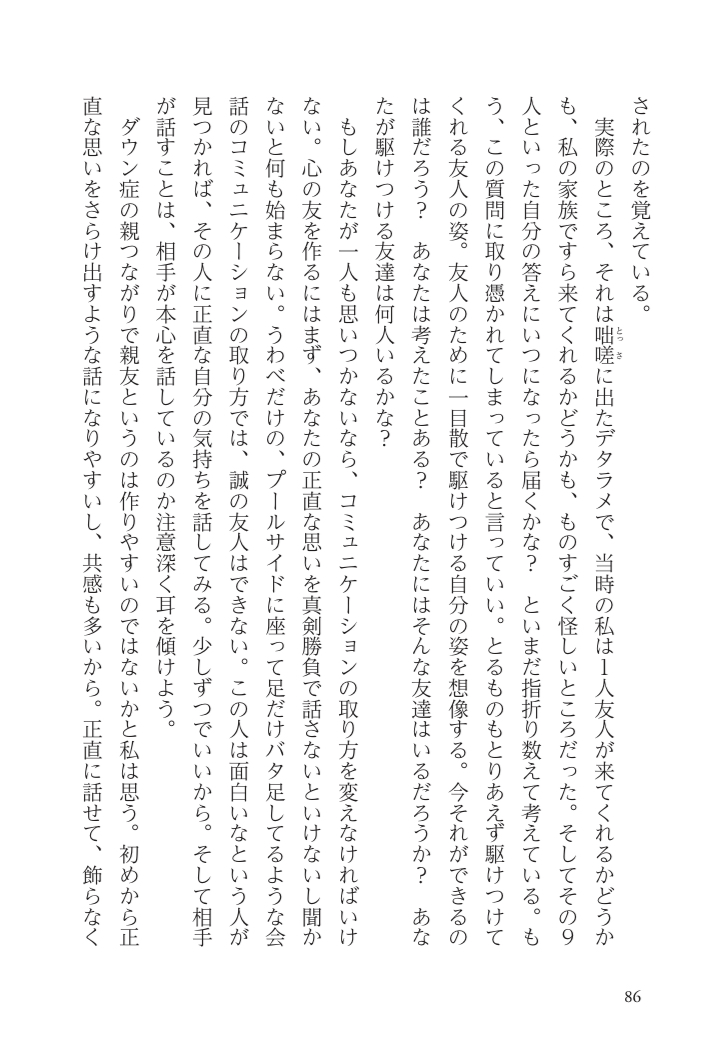 されたのを覚えている。
　実際のところ、それは咄嗟に出たデタラメで、当時の私は１人友人が来てくれるかどうか
も、私の家族ですら来てくれるかどうかも、ものすごく怪しいところだった。そしてその９
人といった自分の答えにいつになったら届くかな？　といまだ指折り数えて考えている。も
う、この質問に取り憑かれてしまっていると言っていい。とるものもとりあえず駆けつけて
くれる友人の姿。友人のために一目散で駆けつける自分の姿を想像する。今それができるの
は誰だろう？　あなたは考えたことある？　あなたにはそんな友達はいるだろうか？　あな
たが駆けつける友達は何人いるかな？
　もしあなたが一人も思いつかないなら、コミュニケーションの取り方を変えなければいけ
ない。心の友を作るにはまず、あなたの正直な思いを真剣勝負で話さないといけないし聞か
ないと何も始まらない。うわべだけの、プールサイドに座って足だけバタ足してるような会
話のコミュニケーションの取り方では、誠の友人はできない。この人は面白いなという人が
見つかれば、その人に正直な自分の気持ちを話してみる。少しずつでいいから。そして相手
が話すことは、相手が本心を話しているのか注意深く耳を傾けよう。
　ダウン症の親つながりで親友というのは作りやすいのではないかと私は思う。初めから正
直な思いをさらけ出すような話になりやすいし、共感も多いから。正直に話せて、飾らなく
とっさ
86